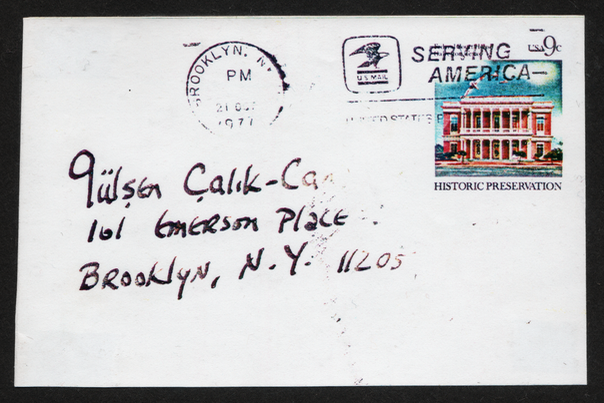 BROOKLYN, N.
PM
21 OCT
1977
U.S. MAIL
SERVING
AMERICA
USA 9c
HISTORIC PRESERVATION
Gülşen Çalık-Ca
101 EMERSON PlacE
BROOKlyN, N.Y. 11205